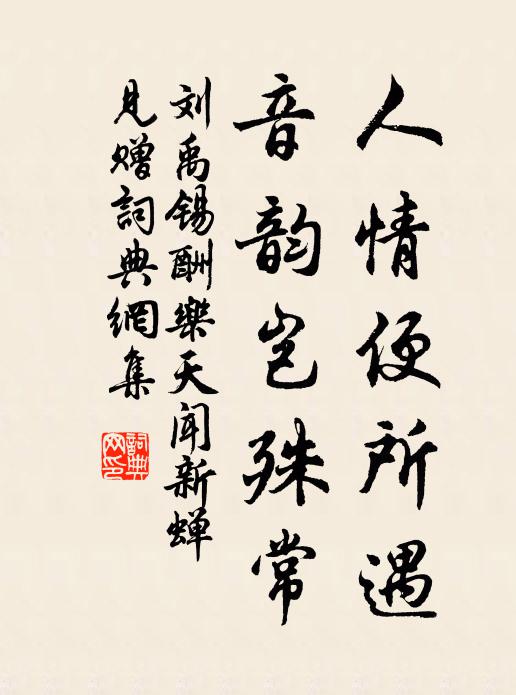 人情便所遇
音韵岂殊常
刘禹锡酬樂天闻新蝉
見赠詞典網集
詞典
网印